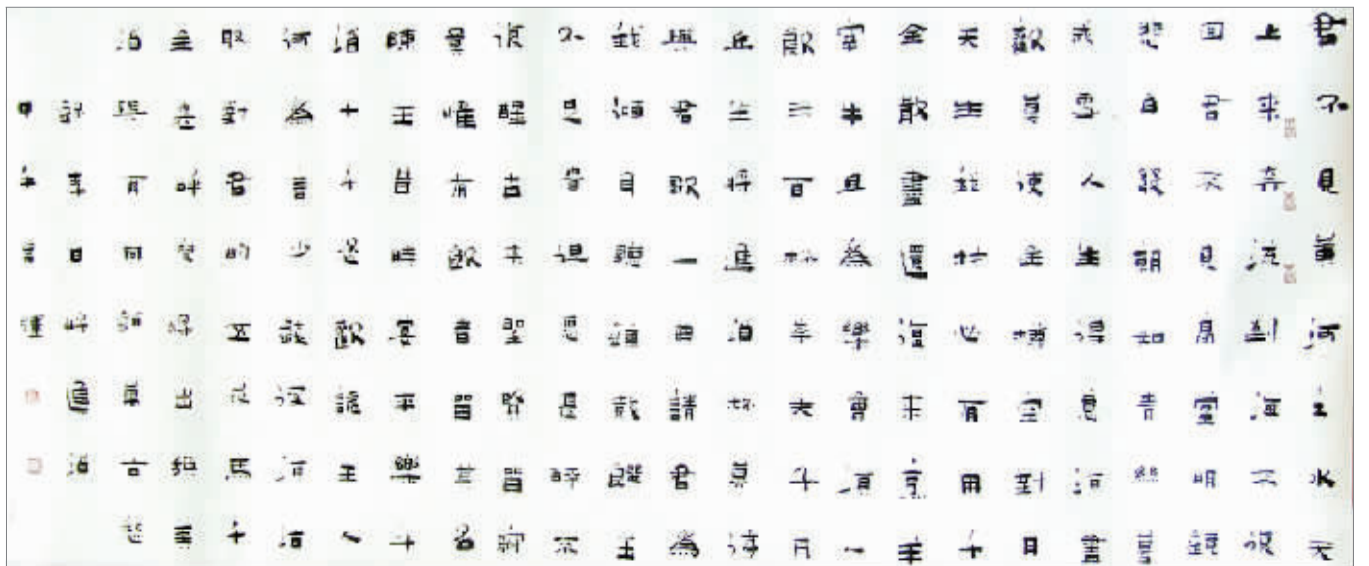 君不見黃河之水天
上來奔流到海不復
回君不見高堂明鏡
悲白髮朝如青絲暮
成雪人生得意須盡
歡莫使金樽空對月
天生我材必有用千
金散盡還復来烹羊
宰牛且為樂會須一
飲三百杯岑夫子丹
丘生將進酒杯莫停
與君歌一曲請君為
我傾耳聽鐘鼓饌玉
不足貴但願長醉不
復醒古来聖賢皆寂
寞惟有飲者留其名
陳王昔時宴平樂斗
酒十千恣歡謔主人
何為言少錢徑須沽
取對君酌五花馬千
金裘呼兒將出換美
酒與爾同銷萬古愁
李白將進酒
甲午